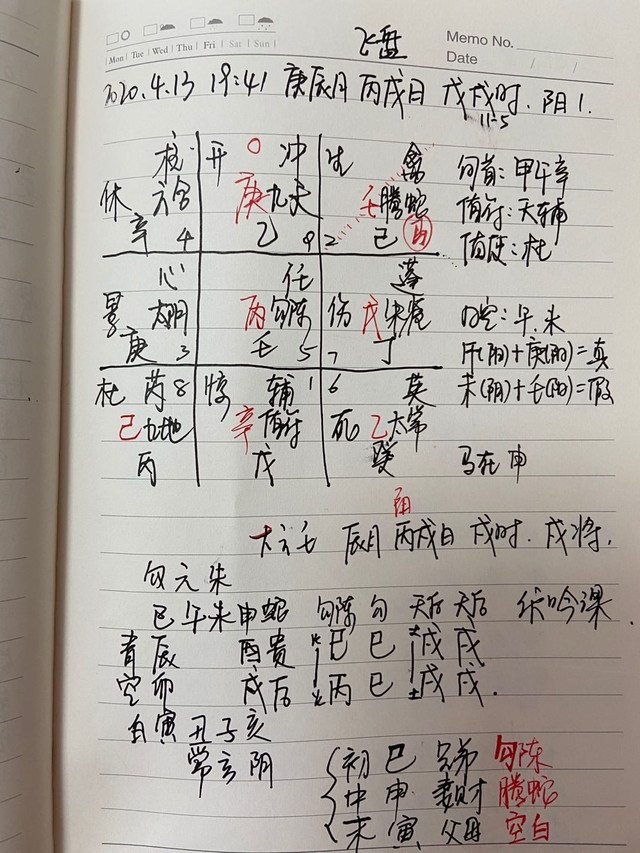 飞盘
Memo No.
Mon Tue Wed Thu Fri Sat Sun
Date / /
2020.4.13 19:41 庚辰月 丙戌日 戊戌时. 阴1.
11-5
开 冲
生 禽
旬首: 甲午辛
休 六合
庚九天
壬腾蛇
值符: 天辅
辛 4
乙 9
2 己 丙
值使: 杜
心
任
蓬
太阴
丙勾陈
伤 戊朱雀
旬空: 午.未
庚 3
壬 5
7 丁
午(阳)+庚(阳)=真
杜 芮 8
惊 辅 1
6 英
未(阴)+壬(阳)=假
己九地
辛值符
死 乙太常
丙
戊
癸
马在申
大六壬 辰月 丙戌日 戌时. 戌将.
勾 六 朱
巳 午 未 申 蛇 勾陈 勾 天后 天后 伏吟课.
青 辰 酉 贵 火 巳 巳 土 戌 戌
空 卯 戌 后 火 丙 巳 土 戌 戌.
白 寅 丑 子 亥
常 玄 阴
初 巳 兄弟 勾陈
中 申 妻财 腾蛇
末 寅 父母 空白